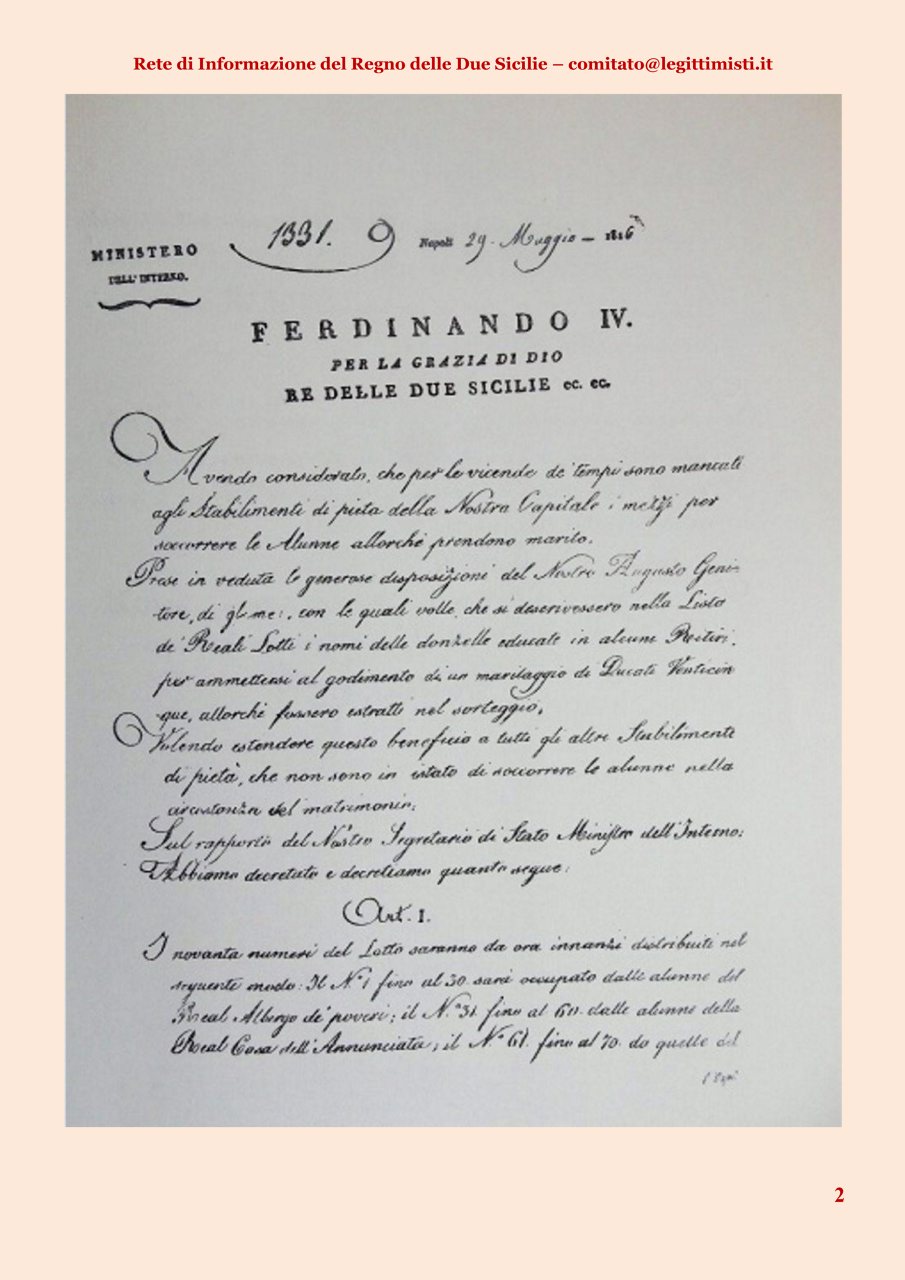 Rete di Informazione del Regno delle Due Sicilie – comitato@legittimisti.it
1331. 9 Napoli 29. Maggio – 1816
MINISTERO
DELL'INTERNO.
FERDINANDO IV.
PER LA GRAZIA DI DIO
RE DELLE DUE SICILIE ec. ec.
Avendo considerato, che per le vicende de' tempi sono mancati
agli Stabilimenti di pietà della Nostra Capitale i mezzi per
soccorrere le Alunne allorchè prendono marito.
Prese in veduta le generose disposizioni del Nostro Augusto Geni-
tore, di gl: me:, con le quali volle, che si descrivessero nella Lista
de' Reali Lotti i nomi delle donzelle educate in alcuni Ritiri,
per ammettersi al godimento di un maritaggio di Ducati Venticin
que, allorchè fossero estratti nel sorteggio.
Volendo estendere questo beneficio a tutti gli altri Stabilimenti
di pietà, che non sono in istato di soccorrere le alunne nella
circostanza del matrimonio;
Sul rapporto del Nostro Segretario di Stato Ministro dell'Interno;
Abbiamo decretato e decretiamo quanto segue:
Art. 1.
I novanta numeri del Lotto saranno da ora innanzi distribuiti nel
seguente modo: Il N.° 1 fino al 30. sarà occupato dalle alunne del
Real Albergo de' poveri; il N.° 31. fino al 60. dalle alunne della
Real Casa dell'Annunciata; il N.° 61. fino al 70. da quelle del
2